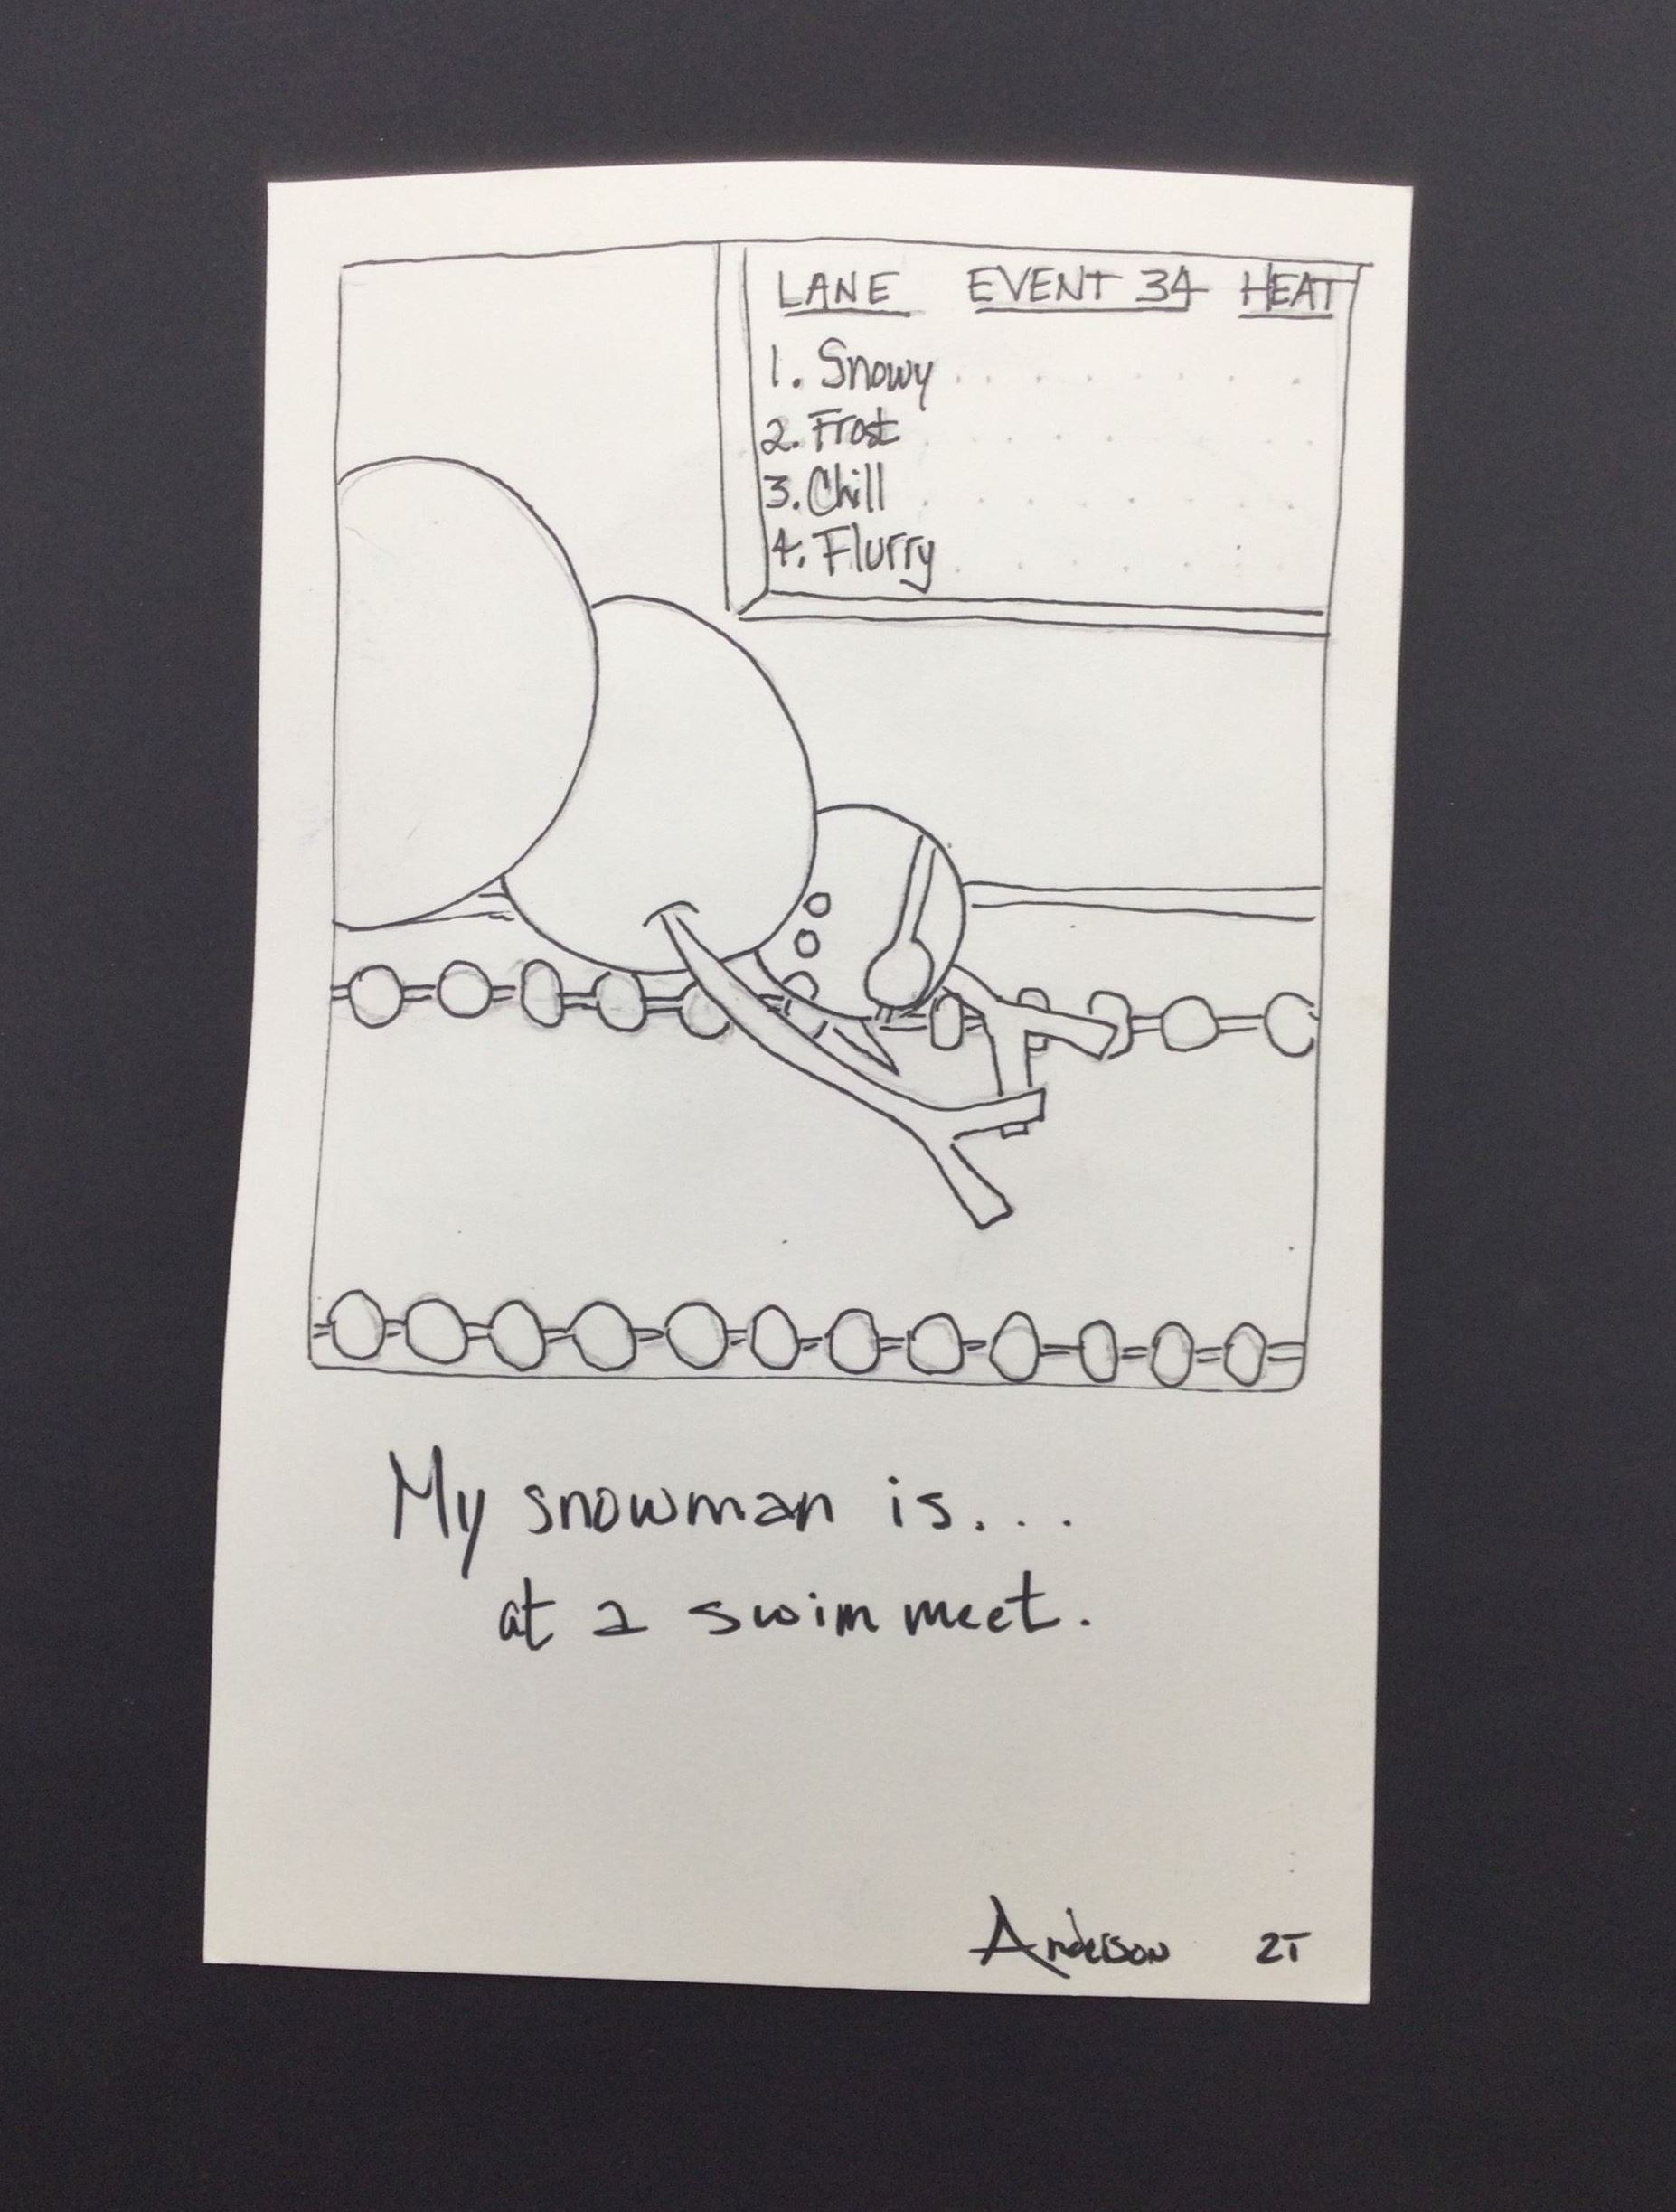 LANE EVENT 34 HEAT
1. Snowy
2. Frost
3. Chill
4. Flurry
My snowman is...
at a swim meet.
Anderson 2T